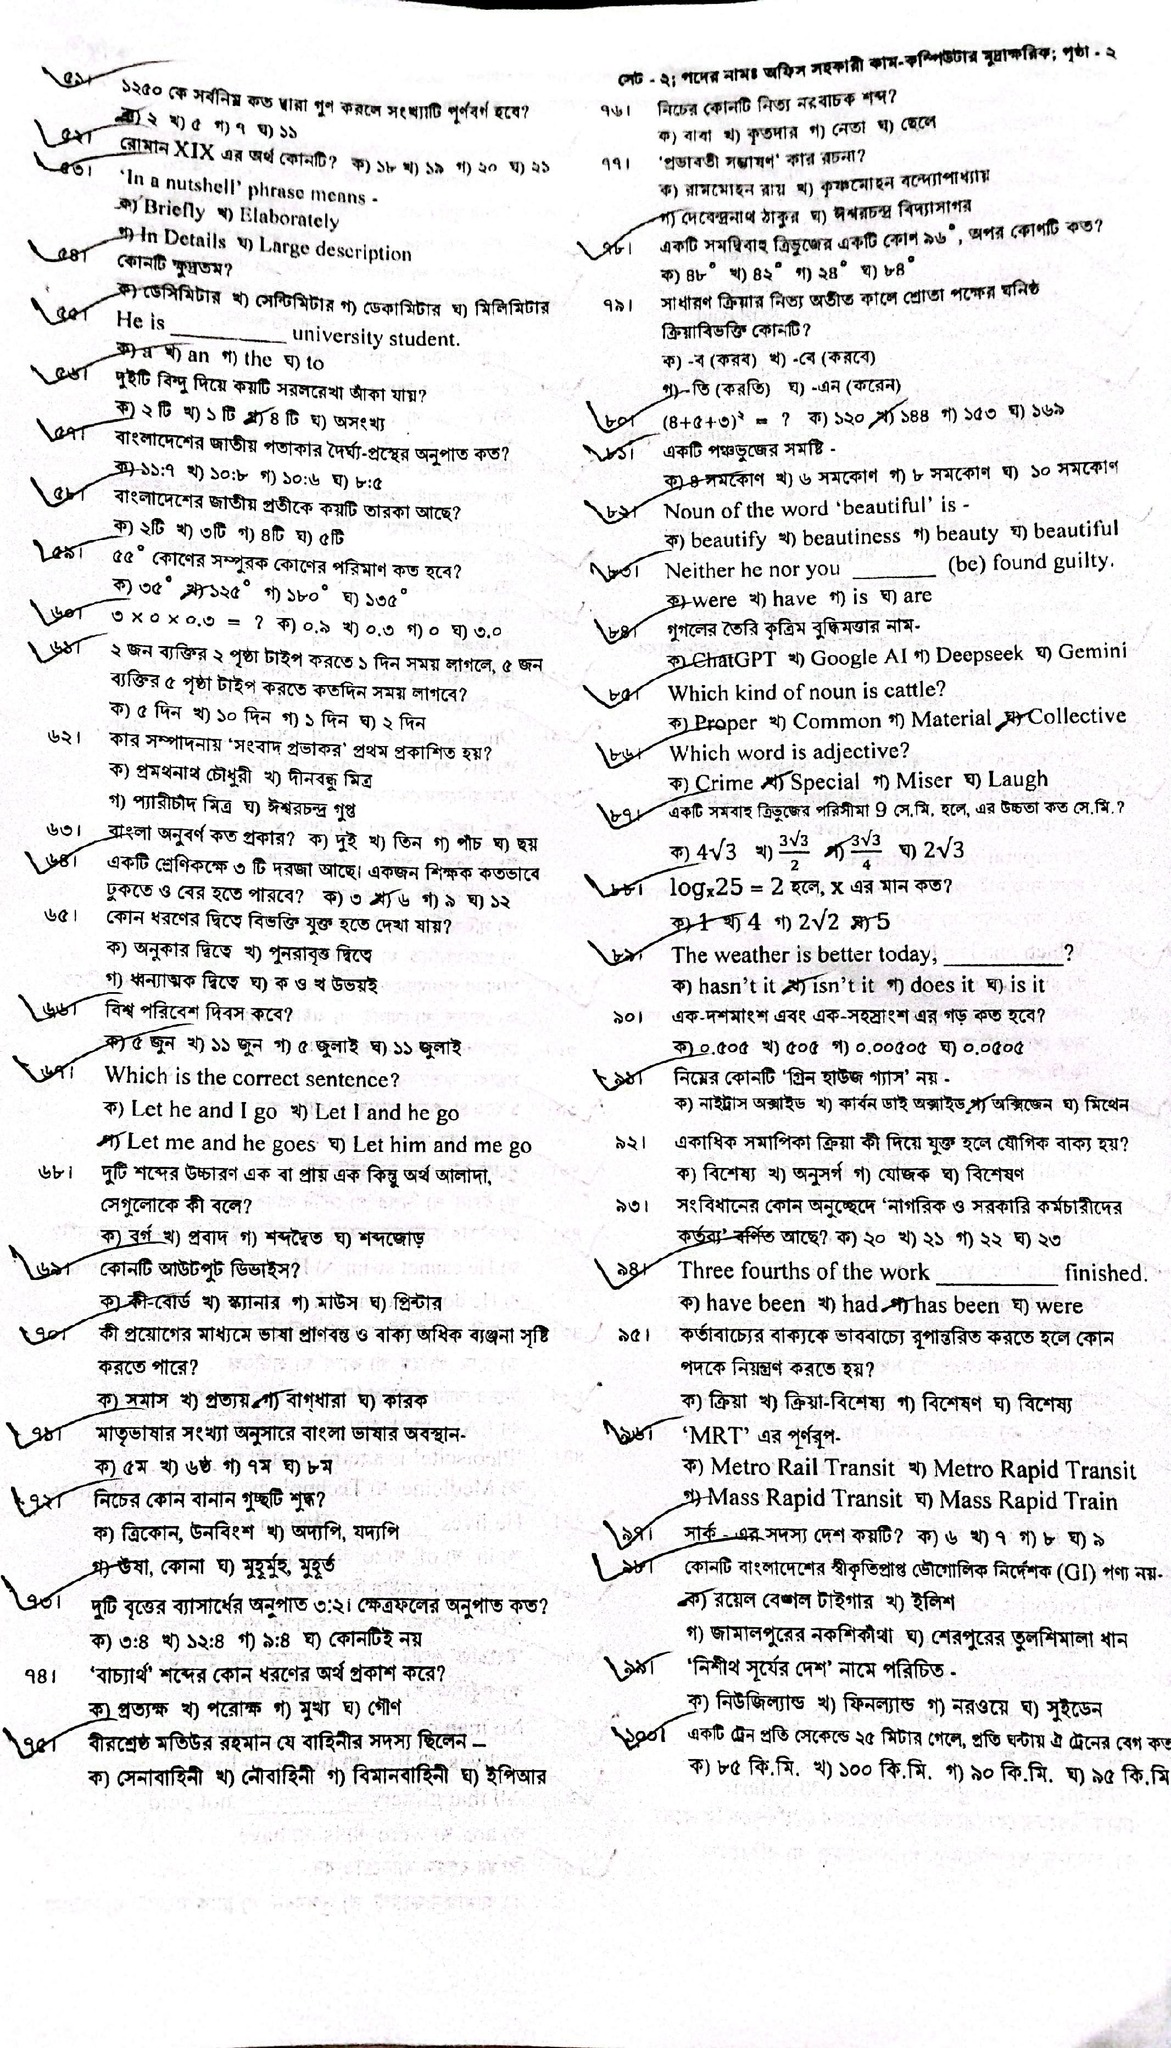 সেট - ২; পদের নামঃ অফিস সহকারী কাম-কম্পিউটার মুদ্রাক্ষরিক; পৃষ্ঠা - ২
৫১। ১২৫০ কে সর্বনিম্ন কত দ্বারা গুণ করলে সংখ্যাটি পূর্ণবর্গ হবে?
ক) ২ খ) ৫ গ) ৭ ঘ) ১১
৫২। রোমান XIX এর অর্থ কোনটি? ক) ১৮ খ) ১৯ গ) ২০ ঘ) ২১
৫৩। ‘In a nutshell’ phrase means -
ক) Briefly খ) Elaborately
গ) In Details ঘ) Large description
৫৪। কোনটি ক্ষুদ্রতম?
ক) ডেসিমিটার খ) সেন্টিমিটার গ) ডেকামিটার ঘ) মিলিমিটার
৫৫। He is __________ university student.
ক) a খ) an গ) the ঘ) to
৫৬। দুইটি বিন্দু দিয়ে কয়টি সরলরেখা আঁকা যায়?
ক) ২ টি খ) ১ টি গ) ৪ টি ঘ) অসংখ্য
৫৭। বাংলাদেশের জাতীয় পতাকার দৈর্ঘ্য-প্রস্থের অনুপাত কত?
ক) ১১:৭ খ) ১০:৮ গ) ১০:৬ ঘ) ৮:৫
৫৮। বাংলাদেশের জাতীয় প্রতীকে কয়টি তারকা আছে?
ক) ২টি খ) ৩টি গ) ৪টি ঘ) ৫টি
৫৯। ৫৫° কোণের সম্পূরক কোণের পরিমাণ কত হবে?
ক) ৩৫° খ) ১২৫° গ) ১৮০° ঘ) ১৩৫°
৬০। ৩ × ০ × ০.৩ = ? ক) ০.৯ খ) ০.৩ গ) ০ ঘ) ৩.০
৬১। ২ জন ব্যক্তির ২ পৃষ্ঠা টাইপ করতে ১ দিন সময় লাগলে, ৫ জন
ব্যক্তির ৫ পৃষ্ঠা টাইপ করতে কতদিন সময় লাগবে?
ক) ৫ দিন খ) ১০ দিন গ) ১ দিন ঘ) ২ দিন
৬২। কার সম্পাদনায় ‘সংবাদ প্রভাকর’ প্রথম প্রকাশিত হয়?
ক) প্রমথনাথ চৌধুরী খ) দীনবন্ধু মিত্র
গ) প্যারীচাঁদ মিত্র ঘ) ঈশ্বরচন্দ্র গুপ্ত
৬৩। বাংলা অনুবর্ণ কত প্রকার? ক) দুই খ) তিন গ) পাঁচ ঘ) ছয়
৬৪। একটি শ্রেণিকক্ষে ৩ টি দরজা আছে। একজন শিক্ষক কতভাবে
ঢুকতে ও বের হতে পারবে? ক) ৩ খ) ৬ গ) ৯ ঘ) ১২
৬৫। কোন ধরণের দ্বিত্বে বিভক্তি যুক্ত হতে দেখা যায়?
ক) অনুকার দ্বিত্বে খ) পুনরাবৃত্ত দ্বিত্বে
গ) ধ্বন্যাত্মক দ্বিত্বে ঘ) ক ও খ উভয়ই
৬৬। বিশ্ব পরিবেশ দিবস কবে?
ক) ৫ জুন খ) ১১ জুন গ) ৫ জুলাই ঘ) ১১ জুলাই
৬৭। Which is the correct sentence?
ক) Let he and I go খ) Let I and he go
গ) Let me and he goes ঘ) Let him and me go
৬৮। দুটি শব্দের উচ্চারণ এক বা প্রায় এক কিন্তু অর্থ আলাদা,
সেগুলোকে কী বলে?
ক) বর্গ খ) প্রবাদ গ) শব্দদ্বৈত ঘ) শব্দজোড়
৬৯। কোনটি আউটপুট ডিভাইস?
ক) কী-বোর্ড খ) স্ক্যানার গ) মাউস ঘ) প্রিন্টার
৭০। কী প্রয়োগের মাধ্যমে ভাষা প্রাণবন্ত ও বাক্য অধিক ব্যঞ্জনা সৃষ্টি
করতে পারে?
ক) সমাস খ) প্রত্যয় গ) বাগ্‌ধারা ঘ) কারক
৭১। মাতৃভাষার সংখ্যা অনুসারে বাংলা ভাষার অবস্থান-
ক) ৫ম খ) ৬ষ্ঠ গ) ৭ম ঘ) ৮ম
৭২। নিচের কোন বানান গুচ্ছটি শুদ্ধ?
ক) ত্রিকোন, উনবিংশ খ) অদ্যপি, যদ্যপি
গ) উষা, কোনা ঘ) মুহূর্মুহ, মুহূর্ত
৭৩। দুটি বৃত্তের ব্যাসার্ধের অনুপাত ৩:২। ক্ষেত্রফলের অনুপাত কত?
ক) ৩:৪ খ) ১২:৪ গ) ৯:৪ ঘ) কোনটিই নয়
৭৪। ‘বাচ্যার্থ’ শব্দের কোন ধরণের অর্থ প্রকাশ করে?
ক) প্রত্যক্ষ খ) পরোক্ষ গ) মুখ্য ঘ) গৌণ
৭৫। বীরশ্রেষ্ঠ মতিউর রহমান যে বাহিনীর সদস্য ছিলেন –
ক) সেনাবাহিনী খ) নৌবাহিনী গ) বিমানবাহিনী ঘ) ইপিআর
৭৬। নিচের কোনটি নিত্য নরবাচক শব্দ?
ক) বাবা খ) কৃতদার গ) নেতা ঘ) ছেলে
৭৭। ‘প্রভাবতী সম্ভাষণ’ কার রচনা?
ক) রামমোহন রায় খ) কৃষ্ণমোহন বন্দ্যোপাধ্যায়
গ) দেবেন্দ্রনাথ ঠাকুর ঘ) ঈশ্বরচন্দ্র বিদ্যাসাগর
৭৮। একটি সমদ্বিবাহু ত্রিভুজের একটি কোণ ৯৬°, অপর কোণটি কত?
ক) ৪৮° খ) ৪২° গ) ২৪° ঘ) ৮৪°
৭৯। সাধারণ ক্রিয়ার নিত্য অতীত কালে শ্রোতা পক্ষের ঘনিষ্ঠ
ক্রিয়াবিভক্তি কোনটি?
ক) -ব (করব) খ) -বে (করবে)
গ) -তি (করতি) ঘ) -এন (করেন)
৮০। (৪+৫+৩)² = ? ক) ১২০ খ) ১৪৪ গ) ১৫৩ ঘ) ১৬৯
৮১। একটি পঞ্চভুজের সমষ্টি -
ক) ৪ সমকোণ খ) ৬ সমকোণ গ) ৮ সমকোণ ঘ) ১০ সমকোণ
৮২। Noun of the word ‘beautiful’ is -
ক) beautify খ) beautiness গ) beauty ঘ) beautiful
৮৩। Neither he nor you _______ (be) found guilty.
ক) were খ) have গ) is ঘ) are
৮৪। গুগলের তৈরি কৃত্রিম বুদ্ধিমত্তার নাম-
ক) ChatGPT খ) Google AI গ) Deepseek ঘ) Gemini
৮৫। Which kind of noun is cattle?
ক) Proper খ) Common গ) Material ঘ) Collective
৮৬। Which word is adjective?
ক) Crime খ) Special গ) Miser ঘ) Laugh
৮৭। একটি সমবাহু ত্রিভুজের পরিসীমা 9 সে.মি. হলে, এর উচ্চতা কত সে.মি.?
ক) 4√3 খ) 3√3/2 গ) 3√3/4 ঘ) 2√3
৮৮। logₓ25 = 2 হলে, x এর মান কত?
ক) 1 খ) 4 গ) 2√2 ঘ) 5
৮৯। The weather is better today, __________?
ক) hasn’t it খ) isn’t it গ) does it ঘ) is it
৯০। এক-দশমাংশ এবং এক-সহস্রাংশ এর গড় কত হবে?
ক) ০.৫০৫ খ) ৫০৫ গ) ০.০০৫০৫ ঘ) ০.০৫০৫
৯১। নিম্নের কোনটি ‘গ্রিন হাউজ গ্যাস’ নয় -
ক) নাইট্রাস অক্সাইড খ) কার্বন ডাই অক্সাইড গ) অক্সিজেন ঘ) মিথেন
৯২। একাধিক সমাপিকা ক্রিয়া কী দিয়ে যুক্ত হলে যৌগিক বাক্য হয়?
ক) বিশেষ্য খ) অনুসর্গ গ) যোজক ঘ) বিশেষণ
৯৩। সংবিধানের কোন অনুচ্ছেদে ‘নাগরিক ও সরকারি কর্মচারীদের
কর্তব্য’ বর্ণিত আছে? ক) ২০ খ) ২১ গ) ২২ ঘ) ২৩
৯৪। Three fourths of the work __________ finished.
ক) have been খ) had গ) has been ঘ) were
৯৫। কর্তাবাচ্যের বাক্যকে ভাববাচ্যে রূপান্তরিত করতে হলে কোন
পদকে নিয়ন্ত্রণ করতে হয়?
ক) ক্রিয়া খ) ক্রিয়া-বিশেষ্য গ) বিশেষণ ঘ) বিশেষ্য
৯৬। ‘MRT’ এর পূর্ণরূপ-
ক) Metro Rail Transit খ) Metro Rapid Transit
গ) Mass Rapid Transit ঘ) Mass Rapid Train
৯৭। সার্ক - এর সদস্য দেশ কয়টি? ক) ৬ খ) ৭ গ) ৮ ঘ) ৯
৯৮। কোনটি বাংলাদেশের স্বীকৃতিপ্রাপ্ত ভৌগোলিক নির্দেশক (GI) পণ্য নয়-
ক) রয়েল বেঙ্গল টাইগার খ) ইলিশ
গ) জামালপুরের নকশিকাঁথা ঘ) শেরপুরের তুলশিমালা ধান
৯৯। ‘নিশীথ সূর্যের দেশ’ নামে পরিচিত -
ক) নিউজিল্যান্ড খ) ফিনল্যান্ড গ) নরওয়ে ঘ) সুইডেন
১০০। একটি ট্রেন প্রতি সেকেন্ডে ২৫ মিটার গেলে, প্রতি ঘন্টায় ঐ ট্রেনের বেগ কত
ক) ৮৫ কি.মি. খ) ১০০ কি.মি. গ) ৯০ কি.মি. ঘ) ৯৫ কি.মি